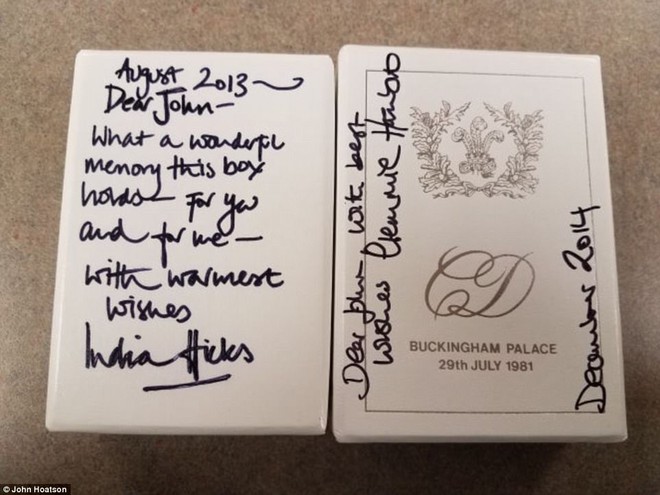 August 2013
Dear John –
What a wonderful
memory this box
holds – for you
and for me –
with warmest
wishes
India Hicks
Dear John – with best
wishes Clemmie Hambro
CD
BUCKINGHAM PALACE
29th JULY 1981
December 2014
© John Hoatson